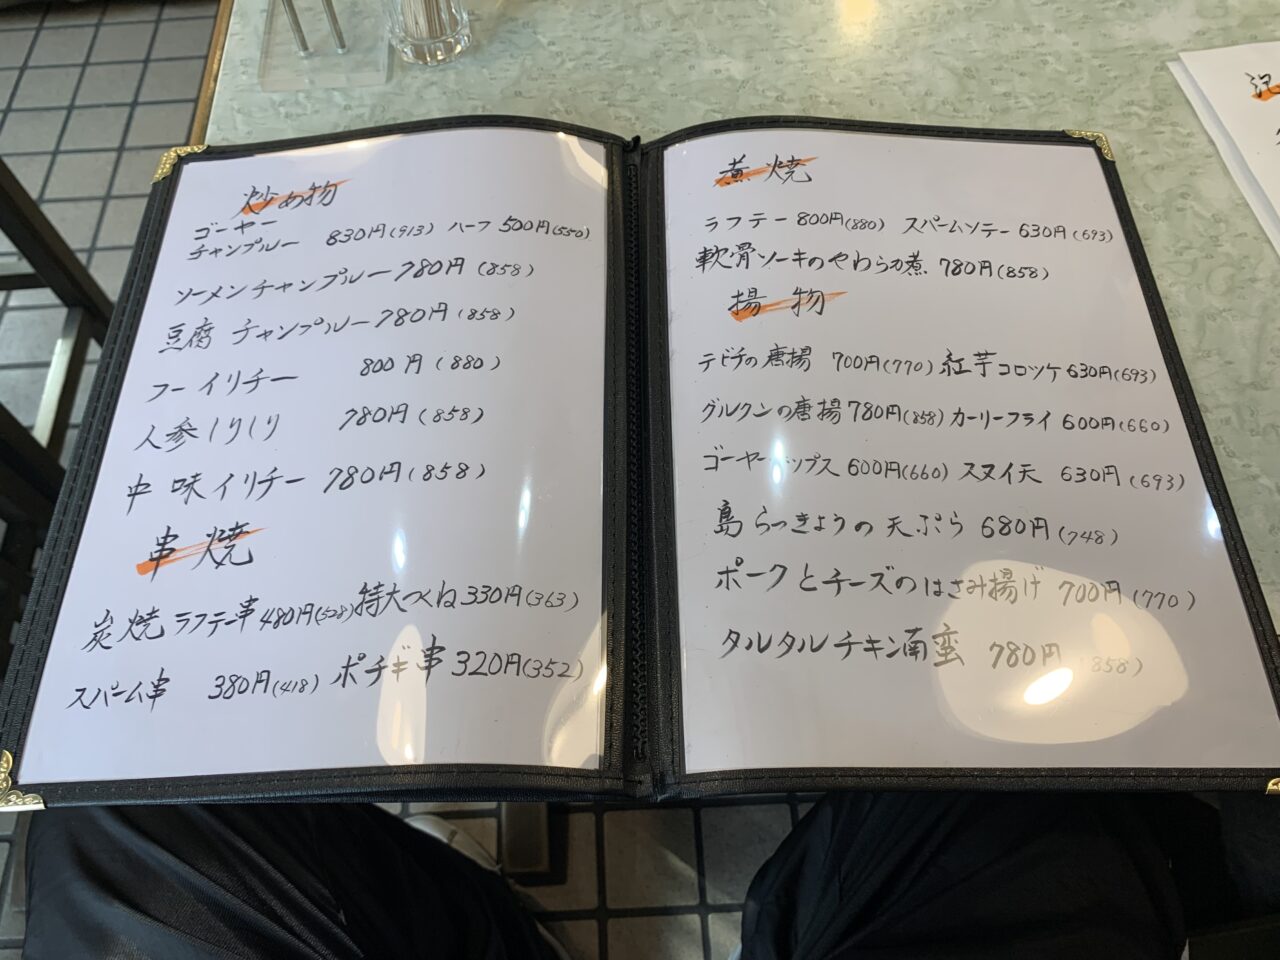 炒め物
ゴーヤー
チャンプルー 830円(913) ハーフ 500円(550)
ソーメンチャンプルー 780円(858)
豆腐チャンプルー 780円(858)
フーイリチー 800円(880)
人参しりしり 780円(858)
中味イリチー 780円(858)
串焼
炭焼ラフテー串 480円(528) 特大つくね 330円(363)
スパム串 380円(418) ポチギ串 320円(352)
煮焼
ラフテー 800円(880) スパームソテー 630円(693)
軟骨ソーキのやわらか煮 780円(858)
揚物
テビチの唐揚 700円(770) 紅芋コロッケ 630円(693)
グルクンの唐揚 780円(858) カーリーフライ 600円(660)
ゴーヤーチップス 600円(660) スヌイ天 630円(693)
島らっきょうの天ぷら 680円(748)
ポークとチーズのはさみ揚げ 700円(770)
タルタルチキン南蛮 780円(858)